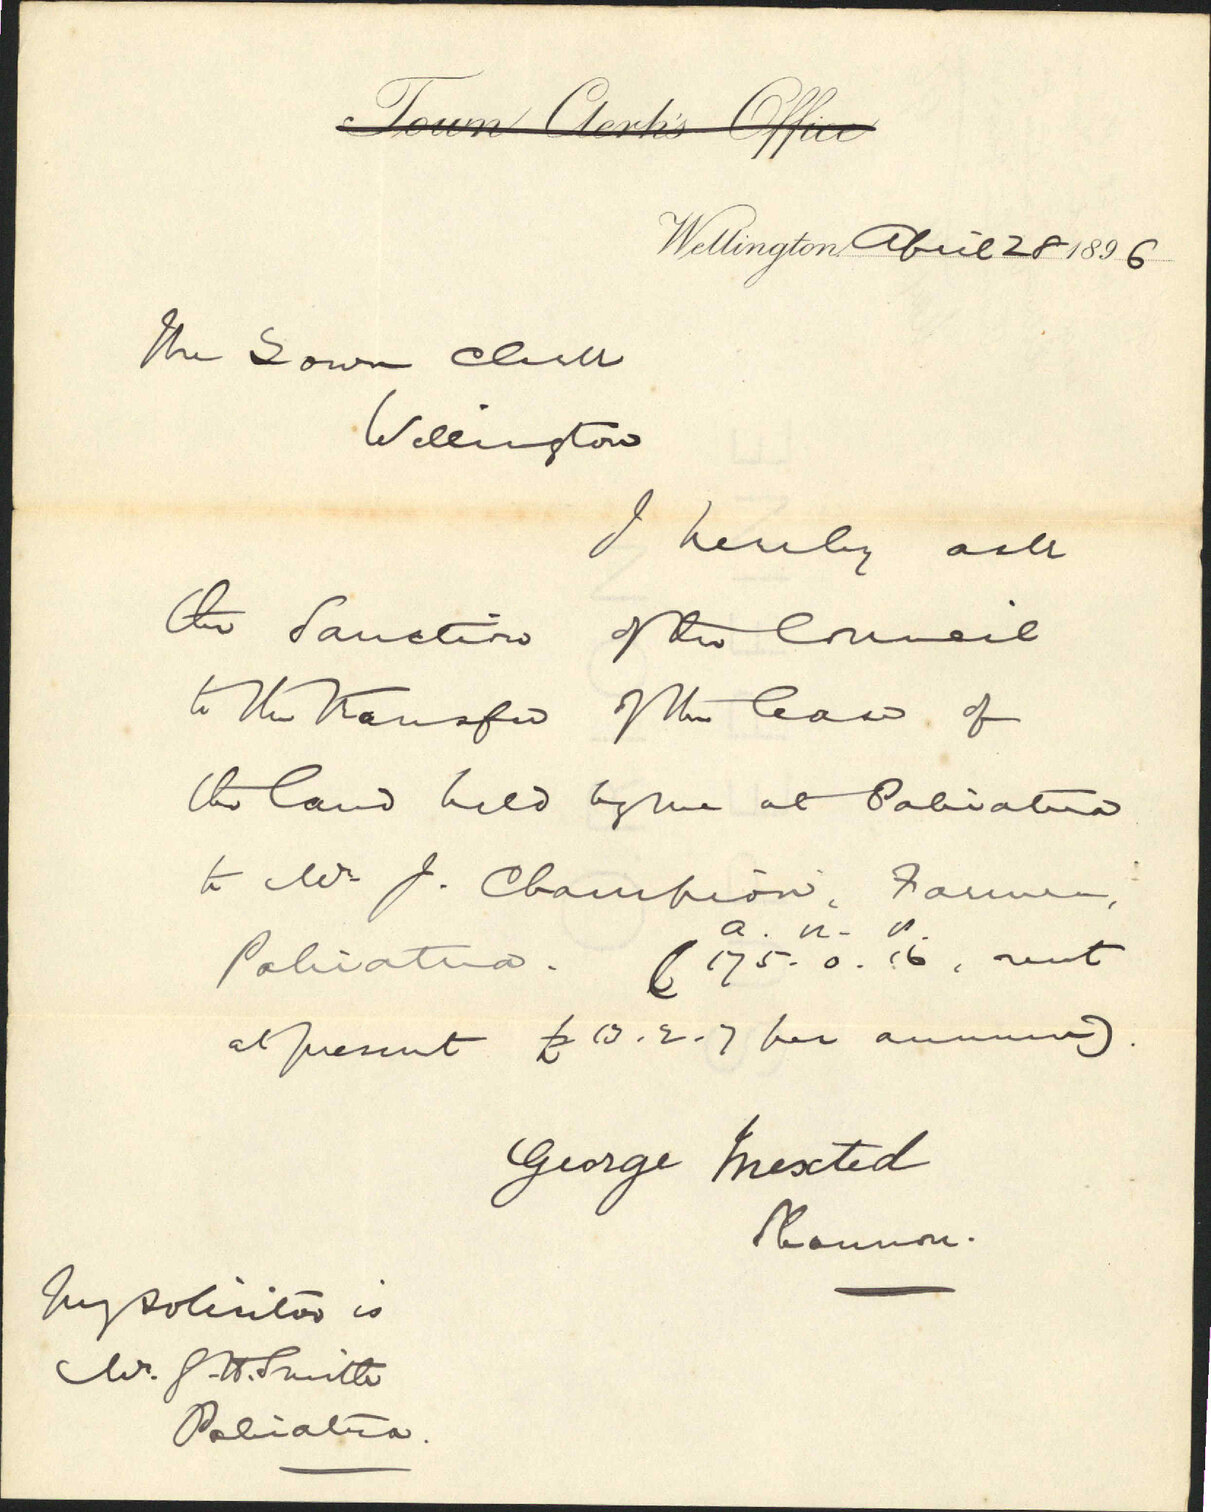 Town Clerk's Office
Wellington April 28 1896
The Town Clerk
Wellington
I hereby ask
the sanction of the Council
to the transfer of the lease of
the land held by me at Pahiatua
to Mr. J. Champion, Farmer,
a. r. p.
Pahiatua. (175. 0. 16, rent
at present £13.2.7 per annum).
George Mexted
Shannon.
My solicitor is
Mr. J. H. Smith
Pahiatua.